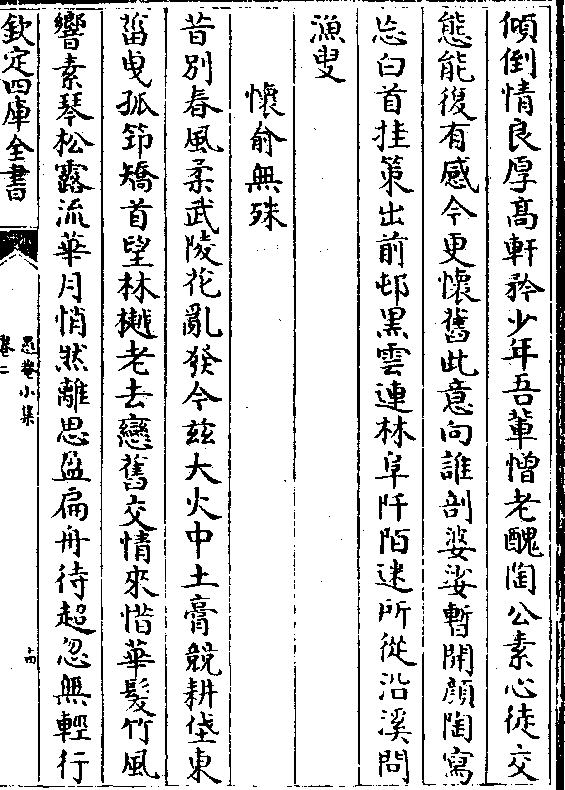 傾倒情良厚高軒矜少年吾輩憎老醜陶公素心徒交
態能復有感今更懷舊此意向誰剖婆娑暫開顔陶寫
忘白首拄策出前邨黑雲連林阜阡陌迷所從沿溪問
漁叟
懷俞無殊
昔別春風柔武陵花亂發今兹大火中土膏競耕垡東
菑曳孤笻矯首望林樾老去戀舊交情來惜華髮竹風
響素琴松露流華月悄然離思盈扁舟待超忽無輕行
欽定四庫全書
愚菴小集
卷二
十四